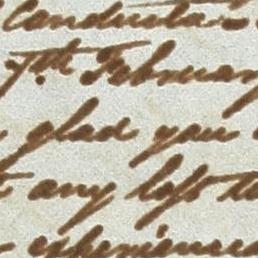 Conducta
7th February
glad you
any left to
experience